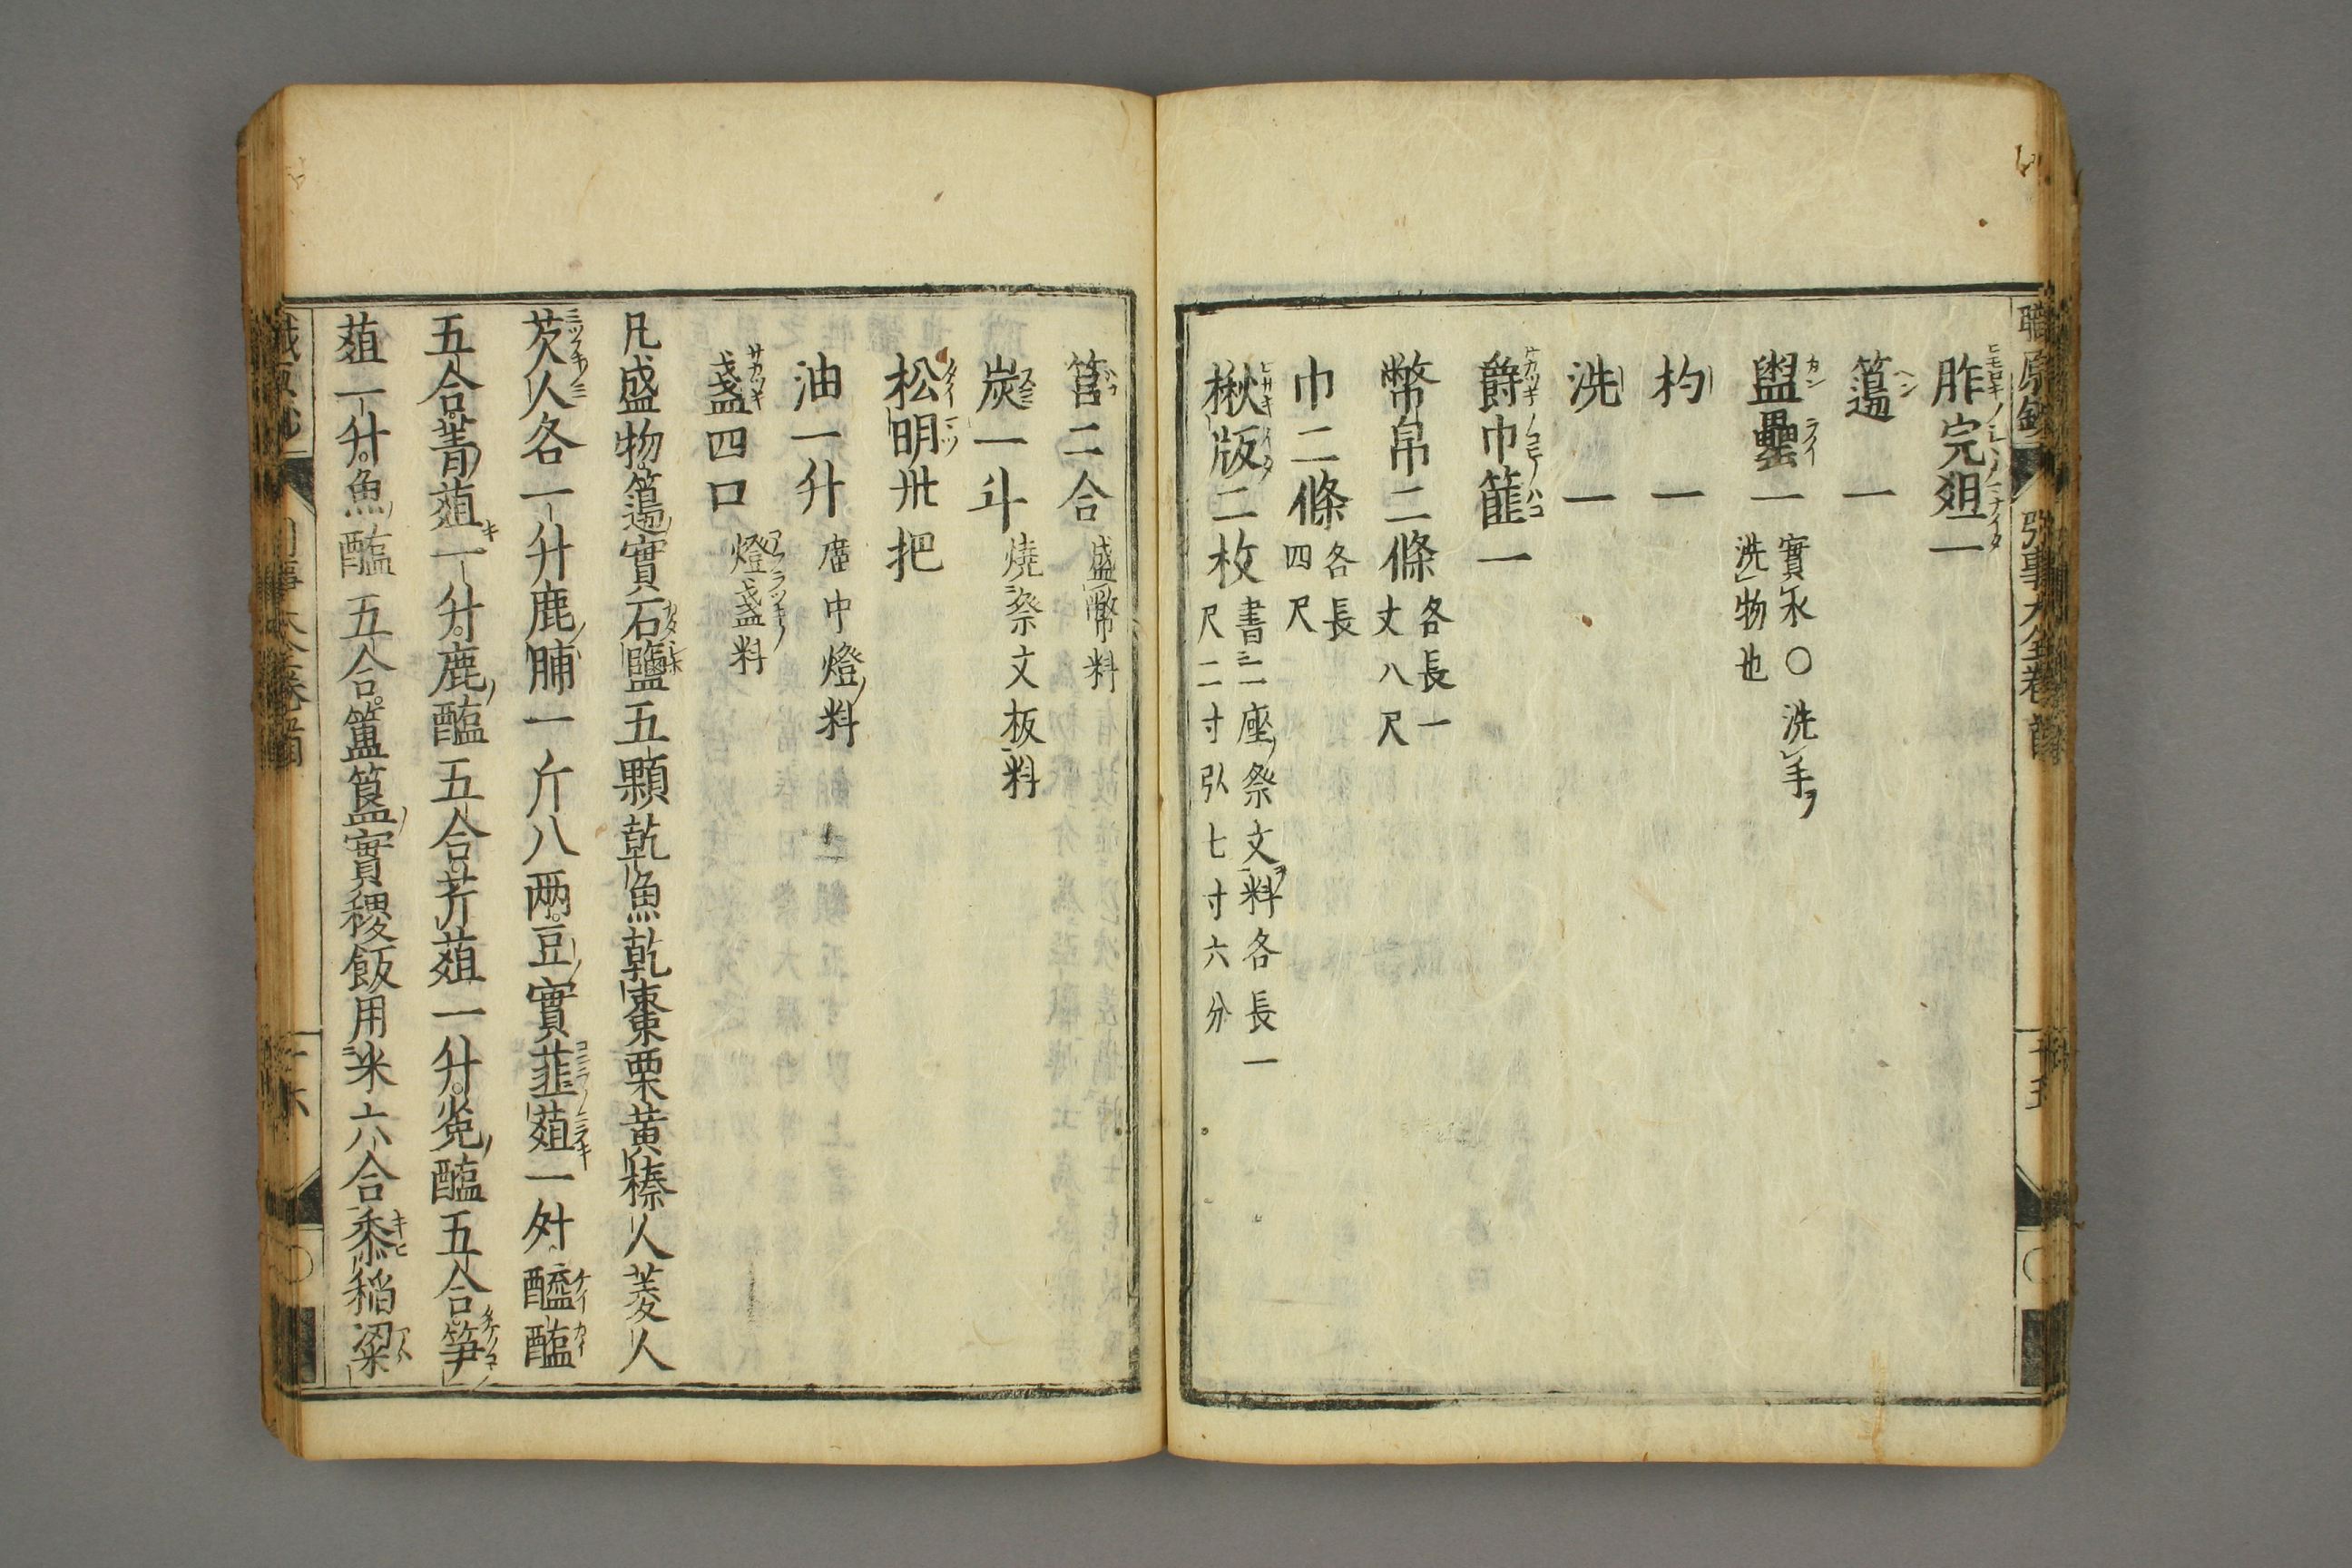 胙完爼一
籩一
盥罍一 實水〇洗手ヲ
洗物也
杓一
洗一
爵巾篚一
幣帛二條 各長一
丈八尺
巾二條 各長
四尺
楸版二枚 書二座祭文ヲ料各長一
尺二寸弘七寸六分
筥二合 盛幣料
炭一斗 燒祭文板料
松明卅把
油一升 廟中燈料
盞四口 燈盞料
凡盛物籩實石鹽五顆乾魚乾棗栗黄榛人菱人
芡人各一升鹿脯一斤八两豆實韮葅一升醯醢
五合菁葅一升鹿醢五合芹葅一升兎醢五合笋
葅一升魚醢五合簠簋實稷飯用米六合黍稲粱